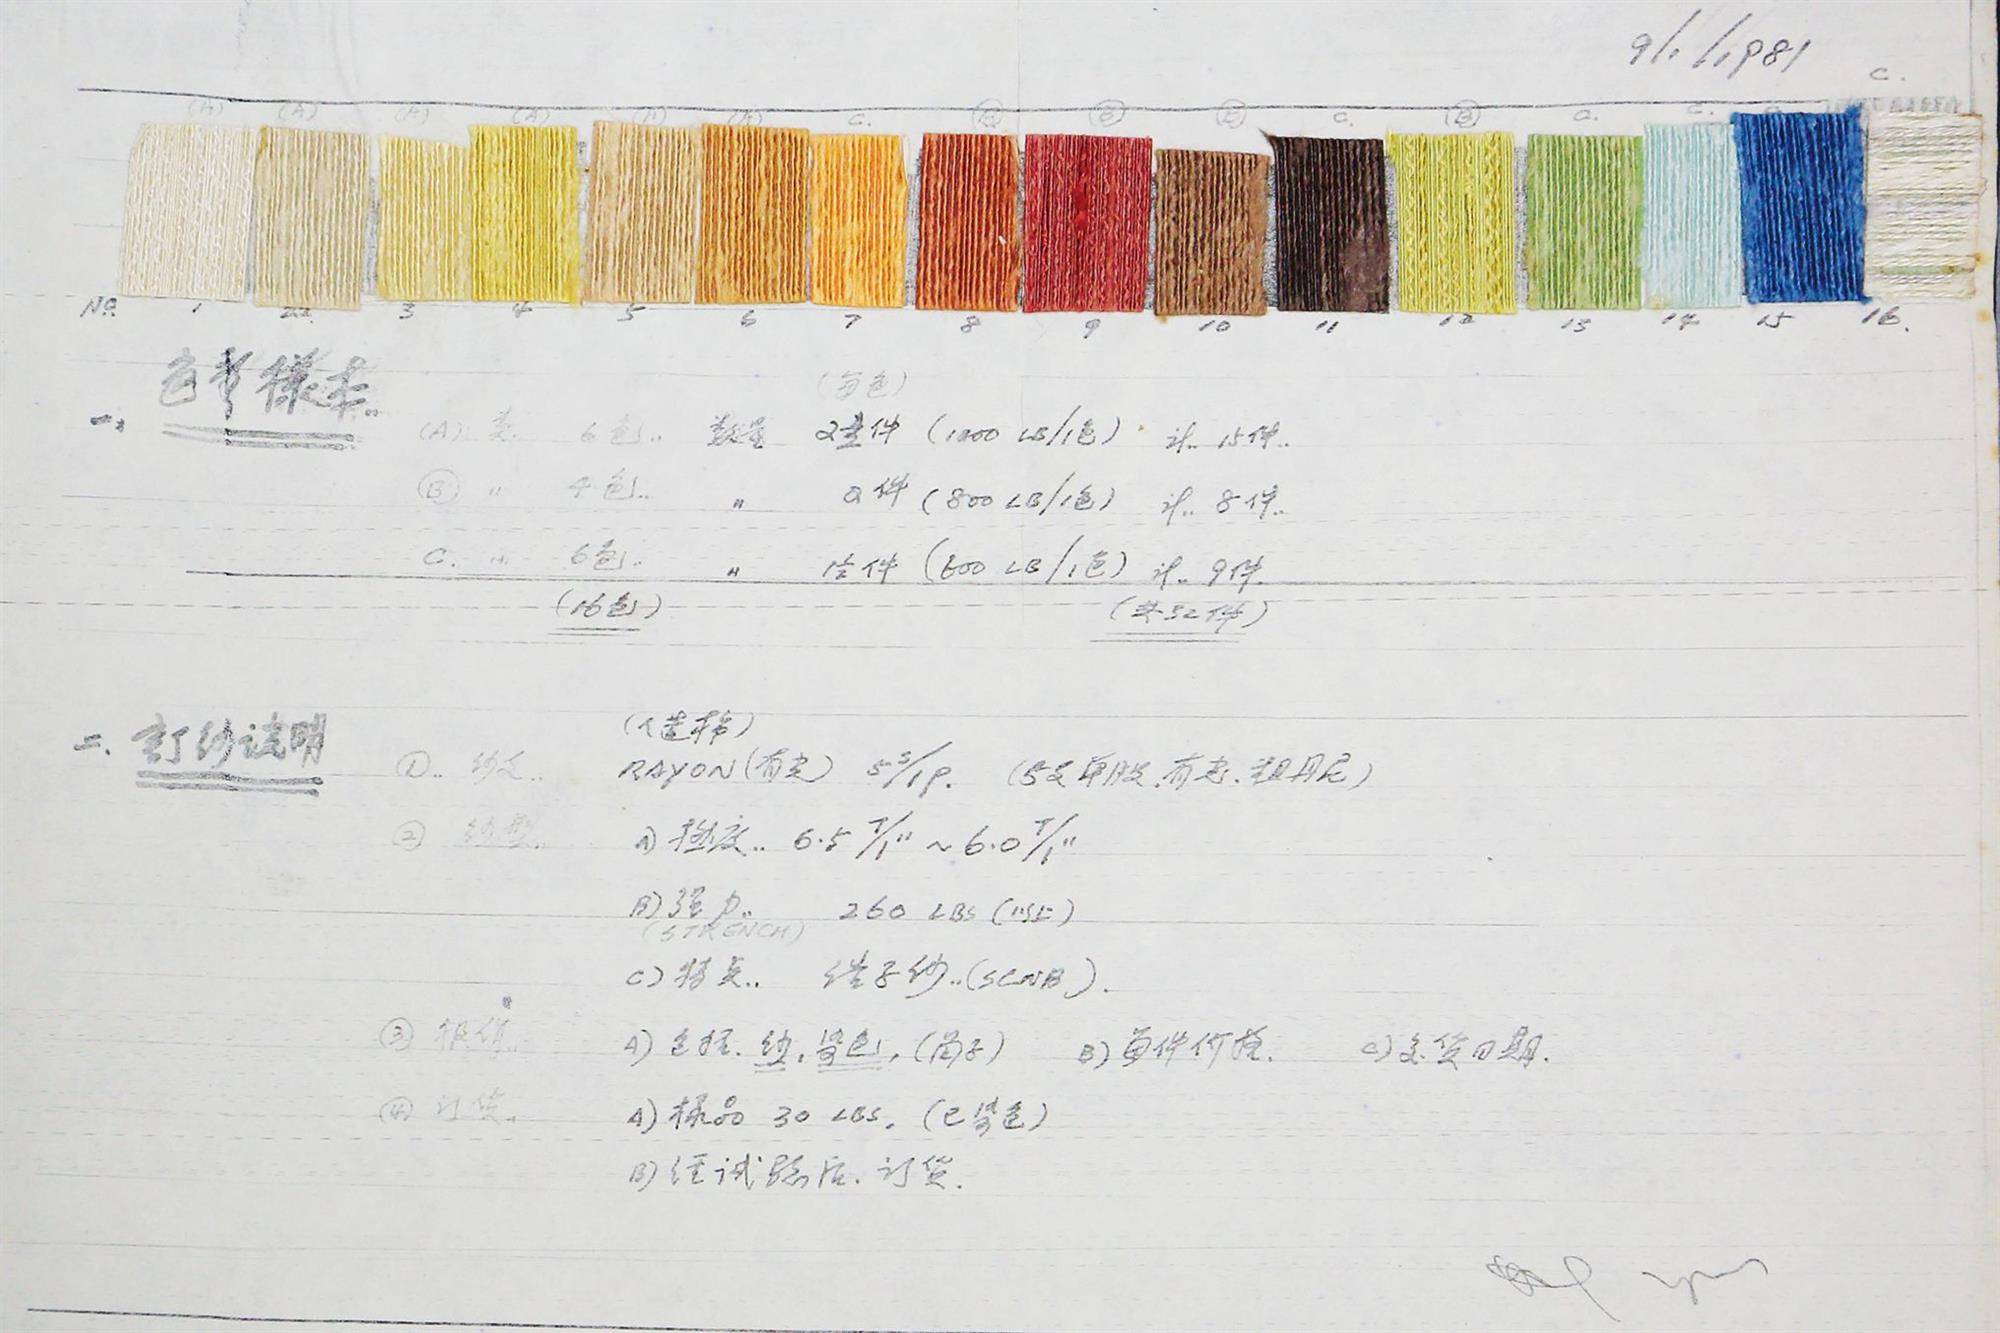 9/1/1981
C.
(A) (A) (A) (A) (A) (A) C. Ⓑ Ⓑ Ⓑ C. Ⓑ C. C.
No. 1 3 4 5 6 7 8 9 10 11 12 13 14 15 16.
一、 色紗樣本..
(每色)
(A) 類 6色.. 数量 2壹件 (1000 LB/1色) 计.. 15件..
Ⓑ 〃 4色.. 〃 2件 (800 LB/1色) 计.. 8件..
C. 〃 6色.. 〃 件 (600 LB/1色) 计.. 9件.
(16色) (共32件)
二. 訂纱说明
(人造棉)
①.. 纱支.. RAYON (有光) 5ˢ/1P. (5支单股.有光.粗丹尼)
② 纱型.. A) 撚度.. 6.5 T/1" ~ 6.0 T/1"
B) 强力.. 260 LBS
(STRENCH)
C) 特点.. 结子纱..
③ 报价.. A) 包括. 纱. 染色. (筒子) B) 每件价格. C) 交货日期.
④ 订货. A) 样品 30 LBS. (已染色)
B) 经试验后. 订货.